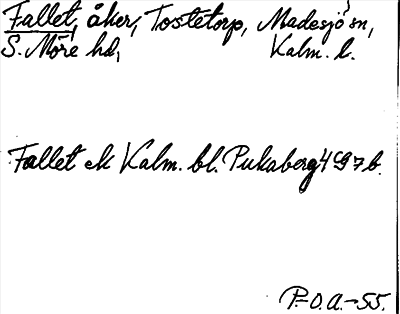 Fallet, åker, Tostetorp, Madesjö sn,
S. Möre hd, Kalm. l.
Fallet ek Kalm. bl. Pukaberg 4 C9 7 b.
P.-O.A.-55.